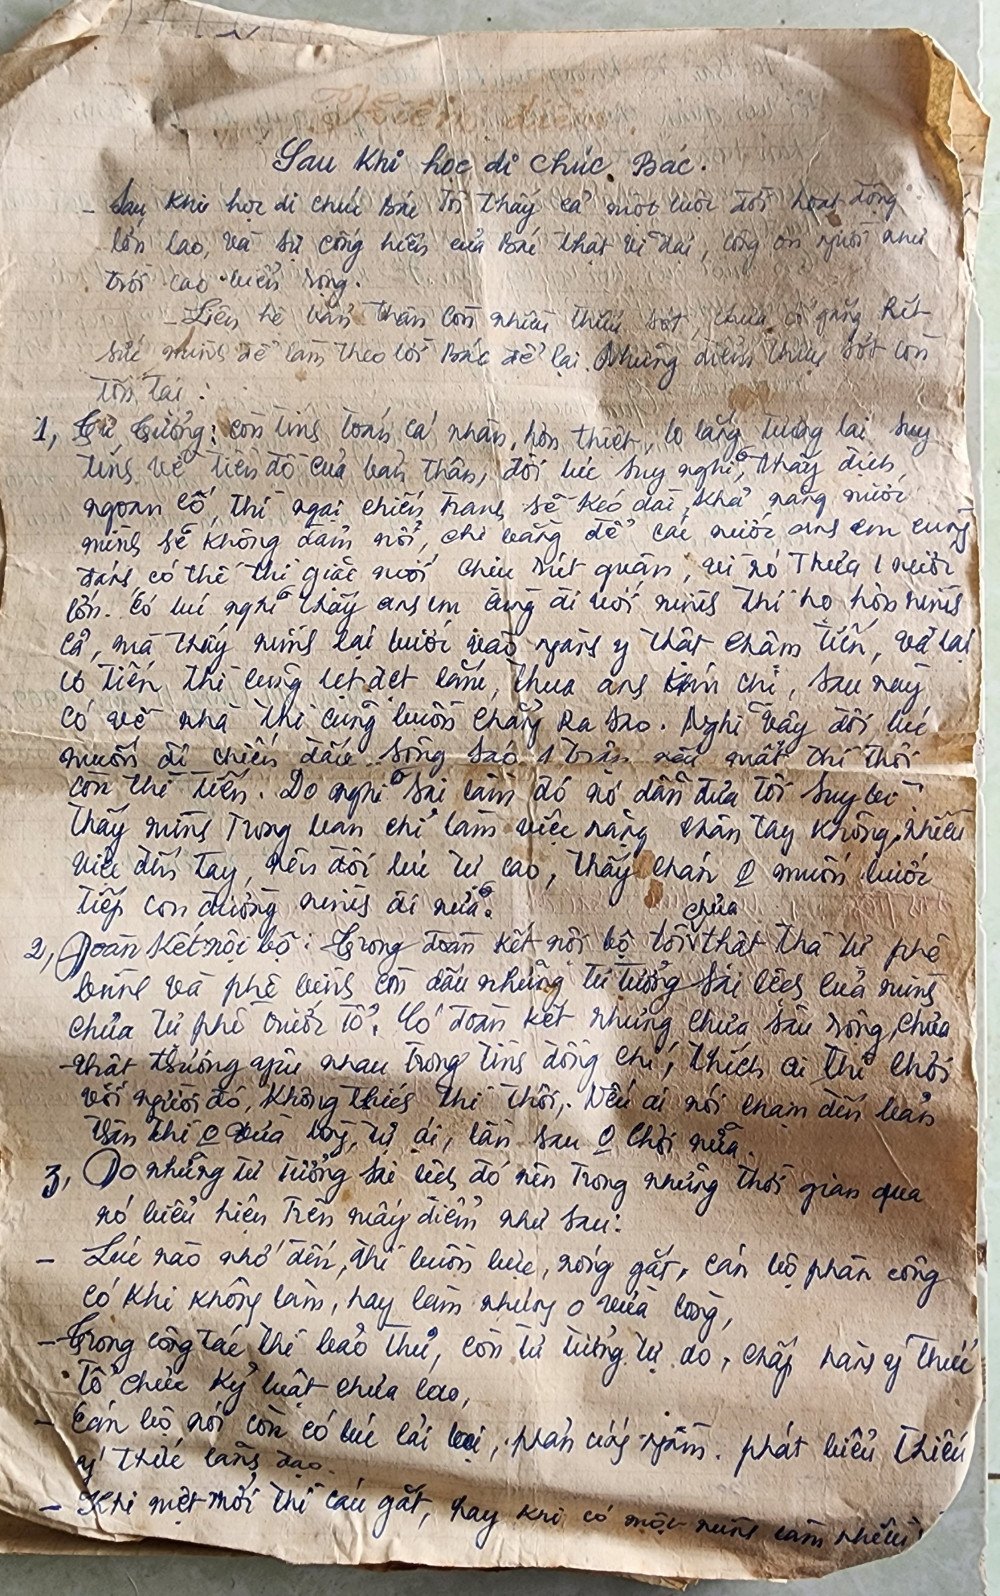 Kiểm điểm.
Sau khi học di chúc Bác.
- Sau khi học di chúc Bác tôi thấy cả một cuộc đời hoạt động
lớn lao, và sự cống hiến của Bác thật vĩ đại, công ơn người như
trời cao biển rộng.
- Liên hệ bản thân còn nhiều thiếu sót, chưa cố gắng hết
sức mình để làm theo lời Bác để lại. Những điểm thiếu sót còn
tồn tại:
1, Tư tưởng: còn tính toán cá nhân, hơn thiệt, lo lắng tương lai suy
tính về tiền đồ của bản thân, đôi lúc suy nghĩ, thấy địch
ngoan cố, thì ngại chiến tranh sẽ kéo dài, khả năng nước
mình sẽ không đảm nổi, chi bằng để các nước anh em cùng
đánh có thể thì giặc mới chịu rút quân, vì nó thua 1 nước
lớn. Có lúc nghĩ thấy anh em cùng đi với mình thì họ hơn mình
cả, mà thấy mình lại bước vào ngành y thật chậm tiến, và lại
có tiến thì cũng lẹt đẹt lắm, thua anh kém chị, sau này
có về nhà thì cũng buồn chẳng ra sao. Nghĩ vậy đôi lúc
muốn đi chiến đấu sống sao 1 trận nếu mất thì thôi
còn thì tiến. Do nghĩ sai lầm đó nó dẫn đưa tôi suy bì
thấy mình trong ban chỉ làm việc nặng chân tay không, nhiều
việc đến tay, nên đôi lúc tự cao, thấy chán 0 muốn bước
tiếp con đường mình đi nữa.
2, Đoàn kết nội bộ: Trong đoàn kết nội bộ tôi chưa thật thà tự phê
bình và phê bình còn dấu những tư tưởng sai lệch của mình
chưa tự phê trước tổ. Có đoàn kết nhưng chưa sâu rộng, chưa
thật thương yêu nhau trong tình đồng chí, thích ai thì chơi
với người đó, không thích thì thôi. Nếu ai nói chạm đến bản
thân thì 0 vừa lòng, tự ái, lần sau 0 chơi nữa.
3, Do những tư tưởng sai lệch đó nên trong những thời gian qua
nó biểu hiện trên mấy điểm như sau:
- Lúc nào nhớ đến, thì buồn bực, nóng gắt, cán bộ phân công
có khi không làm, hay làm nhưng 0 vừa lòng,
- Trong công tác thì bảo thủ, còn tư tưởng tự do, chấp hành ý thức
tổ chức kỷ luật chưa cao,
- Cán bộ nói còn có lúc cãi lại, phản ứng ngầm. phát biểu thiếu
ý thức lãnh đạo.
- Khi mệt mỏi thì cáu gắt, hay khi có một mình làm nhiều